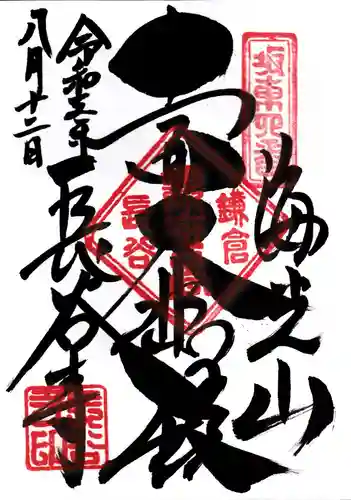 坂東四番
海光山
大悲殿
鎌倉
長谷
令和
八月十二日
長谷寺